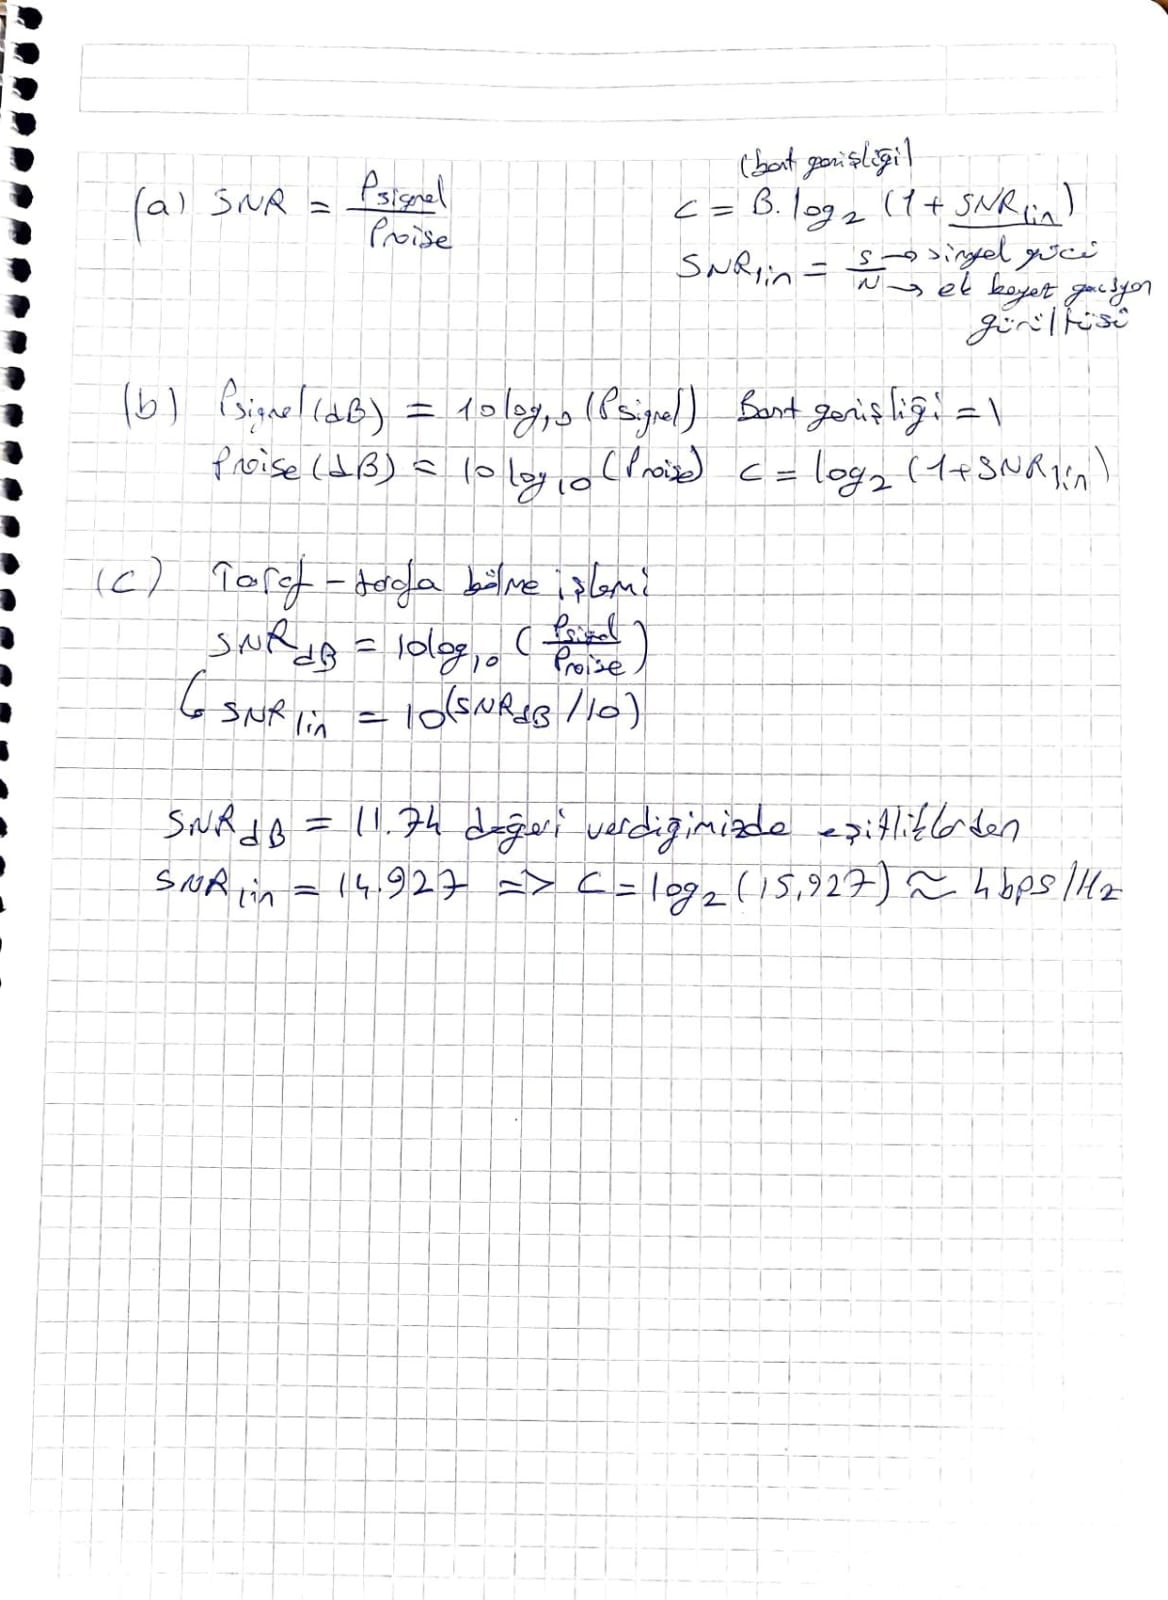 (bant genişliği)
(a) SNR = Psignal / Pnoise
C = B. log₂ (1 + SNR lin)
SNR lin = S/N → sinyal gücü
→ ek beyaz gausyon
gürültüsü
(b) Psignal (dB) = 10 log₁₀ (Psignal) Bant genişliği = 1
Pnoise (dB) = 10 log₁₀ (Pnoise) C = log₂ (1+SNR lin)
(c) Taraf - tarafa bölme işlemi
SNR dB = 10log₁₀ (Psignal / Pnoise)
↳ SNR lin = 10^(SNR dB /10)
SNR dB = 11.74 değeri verdiğimizde eşitliklerden
SNR lin = 14.927 => C = log₂ (15,927) ≈ 4 bps/Hz